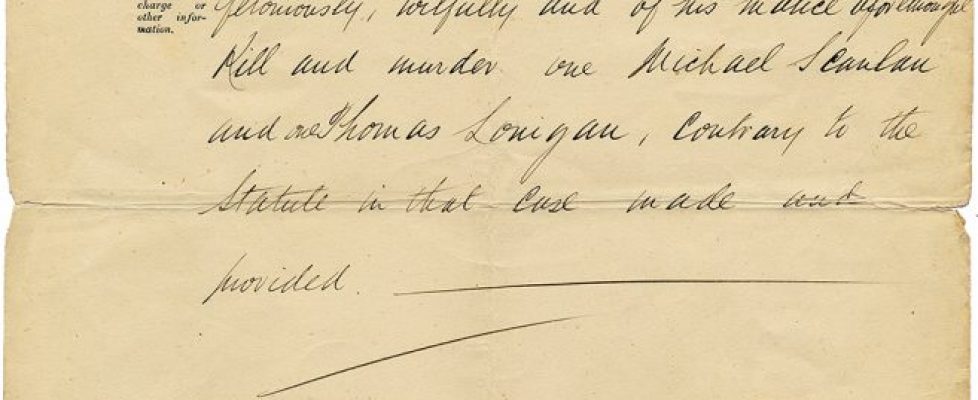 charge or
other infor-
mation.
feloniously, wilfully and of his malice aforethought
Kill and murder one Michael Scanlan
and one Thomas Lonigan, contrary to the
Statute in that case made and
provided.